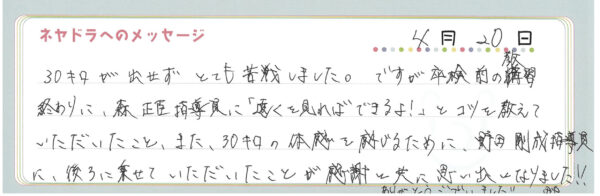 ネヤドラへのメッセージ
4月20日
30キロが出せず とても苦戦しました。ですが卒検前の教習
終わりに、森 正臣 指導員に「遠くを見ればできるよ!」とコツを教えて
いただいたこと、また、30キロの体感を感じるために、野田 剛成指導員
に、後ろに乗せて いただいたことが感謝と共に思い出になりました!!
ありがとうございました!